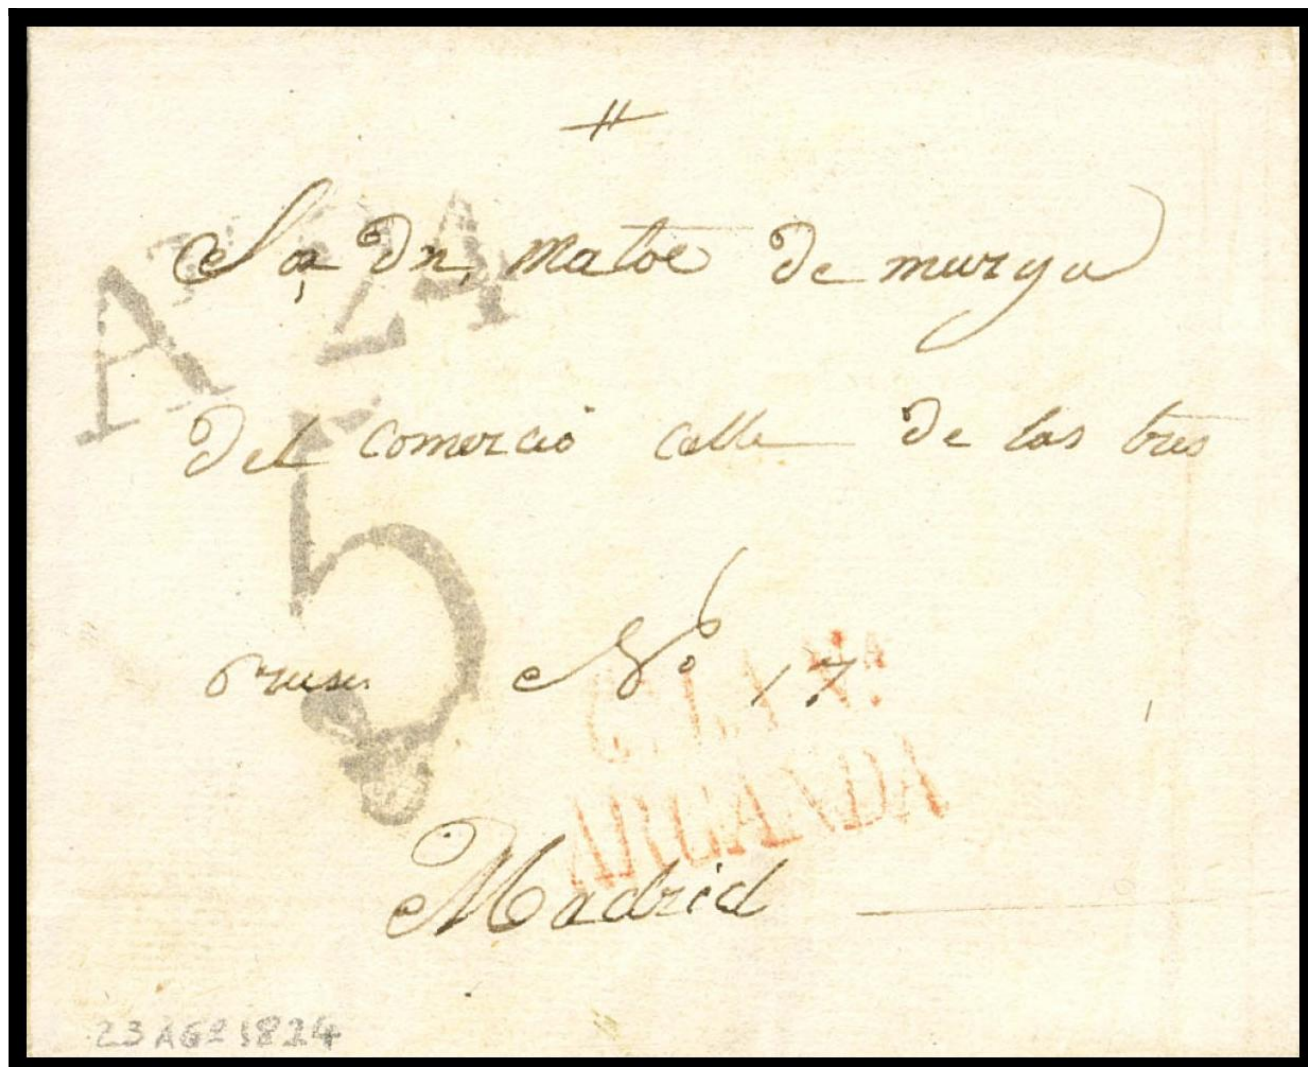 Sor Dn, Matoe de murga
A 24
del comercio calle de las tres
5
cruses No 17
C. L. N.a
ARGANDA
Madrid
23 AGo 1824